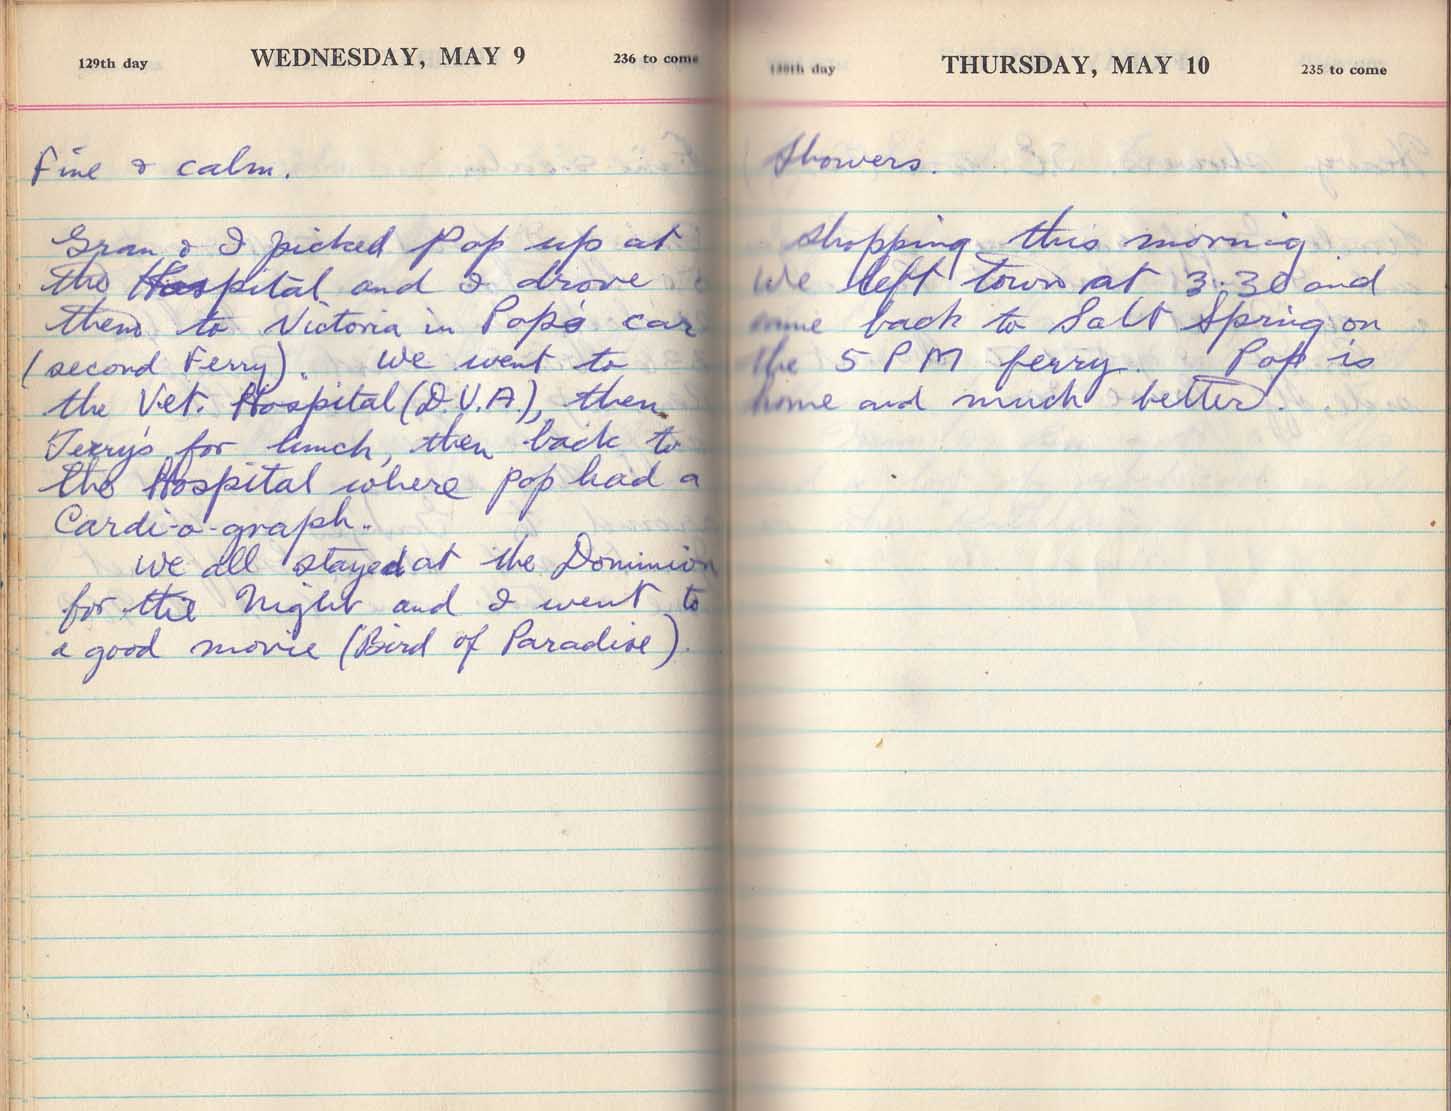 129th day WEDNESDAY, MAY 9 236 to come
Fine & calm.
Gran & I picked Pop up at
the Hospital and I drove
them to Victoria in Pop's car
(second Ferry). We went to
the Vet. Hospital (D.V.A), then
Terry's for lunch, then back to
the Hospital where pop had a
Cardi-o-graph.
We all stayed at the Dominion
for the Night and I went to
a good movie (Bird of Paradise).
130th day THURSDAY, MAY 10 235 to come
Showers.
Shopping this mornig
We left town at 3:30 and
came back to Salt Spring on
the 5 PM ferry. Pop is
home and much better.